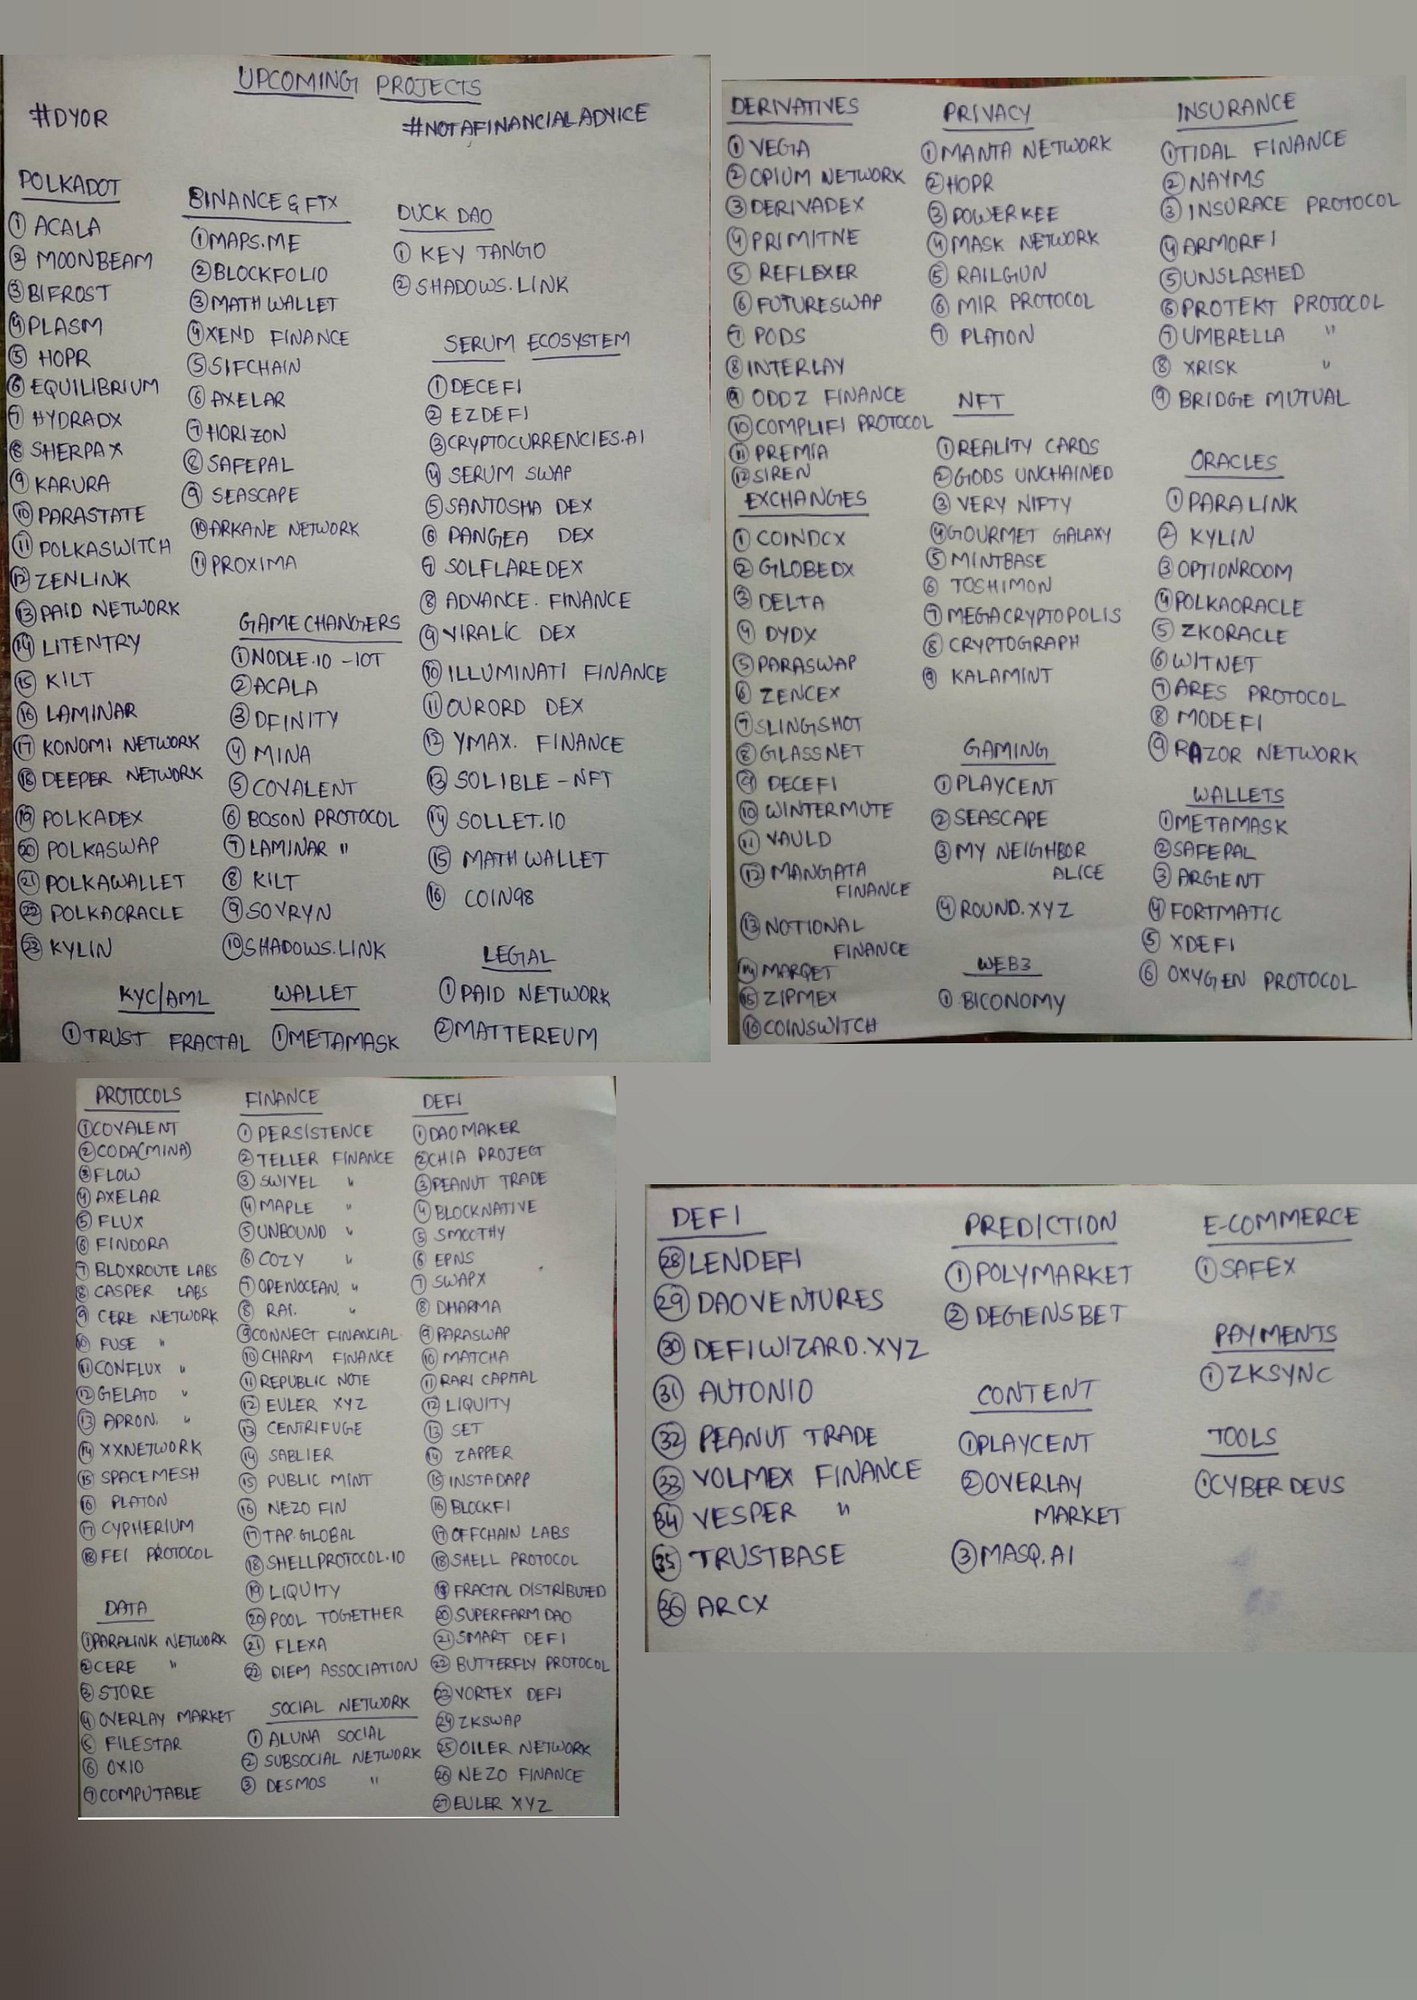 UPCOMING PROJECTS
#DYOR
#NOTAFINANCIALADVICE
POLKADOT
① ACALA
② MOONBEAM
③ BIFROST
④ PLASM
⑤ HOPR
⑥ EQUILIBRIUM
⑦ HYDRADX
⑧ SHERPAX
⑨ KARURA
⑩ PARASTATE
⑪ POLKASWITCH
⑫ ZENLINK
⑬ PAID NETWORK
⑭ LITENTRY
⑮ KILT
⑯ LAMINAR
⑰ KONOMI NETWORK
⑱ DEEPER NETWORK
⑲ POLKADEX
⑳ POLKASWAP
㉑ POLKAWALLET
㉒ POLKAORACLE
㉓ KYLIN
BINANCE & FTX
① MAPS.ME
② BLOCKFOLIO
③ MATH WALLET
④ XEND FINANCE
⑤ SIFCHAIN
⑥ AXELAR
⑦ HORIZON
⑧ SAFEPAL
⑨ SEASCAPE
⑩ ARKANE NETWORK
⑪ PROXIMA
GAME CHANGERS
① NODLE.IO - IOT
② ACALA
③ DFINITY
④ MINA
⑤ COVALENT
⑥ BOSON PROTOCOL
⑦ LAMINAR "
⑧ KILT
⑨ SOVRYN
⑩ SHADOWS.LINK
DUCK DAO
① KEY TANGO
② SHADOWS.LINK
SERUM ECOSYSTEM
① DECEFI
② EZDEFI
③ CRYPTOCURRENCIES.AI
④ SERUM SWAP
⑤ SANTOSHA DEX
⑥ PANGEA DEX
⑦ SOLFLARE DEX
⑧ ADVANCE. FINANCE
⑨ VIRALIC DEX
⑩ ILLUMINATI FINANCE
⑪ OURORD DEX
⑫ YMAX. FINANCE
⑬ SOLIBLE - NFT
⑭ SOLLET.IO
⑮ MATH WALLET
⑯ COIN98
LEGAL
① PAID NETWORK
② MATTEREUM
KYC/AML
① TRUST FRACTAL
WALLET
① METAMASK
DERIVATIVES
① VEGA
② OPIUM NETWORK
③ DERIVADEX
④ PRIMITIVE
⑤ REFLEXER
⑥ FUTURESWAP
⑦ PODS
⑧ INTERLAY
⑨ ODDZ FINANCE
⑩ COMPLIFI PROTOCOL
⑪ PREMIA
⑫ SIREN
EXCHANGES
① COINDCX
② GLOBEDX
③ DELTA
④ DYDX
⑤ PARASWAP
⑥ ZENCEX
⑦ SLINGSHOT
⑧ GLASSNET
⑨ DECEFI
⑩ WINTERMUTE
⑪ VAULD
⑫ MANGATA
FINANCE
⑬ NOTIONAL
FINANCE
⑭ MARQET
⑮ ZIPMEX
⑯ COINSWITCH
PRIVACY
① MANTA NETWORK
② HOPR
③ POWERKEE
④ MASK NETWORK
⑤ RAILGUN
⑥ MIR PROTOCOL
⑦ PLATON
NFT
① REALITY CARDS
② GODS UNCHAINED
③ VERY NIFTY
④ GOURMET GALAXY
⑤ MINTBASE
⑥ TOSHIMON
⑦ MEGACRYPTOPOLIS
⑧ CRYPTOGRAPH
⑨ KALAMINT
GAMING
① PLAYCENT
② SEASCAPE
③ MY NEIGHBOR
ALICE
④ ROUND.XYZ
WEB3
① BICONOMY
INSURANCE
① TIDAL FINANCE
② NAYMS
③ INSURACE PROTOCOL
④ ARMORFI
⑤ UNSLASHED
⑥ PROTEKT PROTOCOL
⑦ UMBRELLA "
⑧ XRISK "
⑨ BRIDGE MUTUAL
ORACLES
① PARALINK
② KYLIN
③ OPTIONROOM
④ POLKAORACLE
⑤ ZKORACLE
⑥ WITNET
⑦ ARES PROTOCOL
⑧ MODEFI
⑨ RAZOR NETWORK
WALLETS
① METAMASK
② SAFEPAL
③ ARGENT
④ FORTMATIC
⑤ XDEFI
⑥ OXYGEN PROTOCOL
PROTOCOLS
① COVALENT
② CODA(MINA)
③ FLOW
④ AXELAR
⑤ FLUX
⑥ FINDORA
⑦ BLOXROUTE LABS
⑧ CASPER LABS
⑨ CERE NETWORK
⑩ FUSE "
⑪ CONFLUX "
⑫ GELATO "
⑬ APRON. "
⑭ XXNETWORK
⑮ SPACEMESH
⑯ PLATON
⑰ CYPHERIUM
⑱ FEI PROTOCOL
DATA
① PARALINK NETWORK
② CERE "
③ STORE
④ OVERLAY MARKET
⑤ FILESTAR
⑥ OXIO
⑦ COMPUTABLE
FINANCE
① PERSISTENCE
② TELLER FINANCE
③ SWIVEL "
④ MAPLE "
⑤ UNBOUND "
⑥ COZY "
⑦ OPENOCEAN. "
⑧ RAI. "
⑨ CONNECT FINANCIAL.
⑩ CHARM FINANCE
⑪ REPUBLIC NOTE
⑫ EULER XYZ
⑬ CENTRIFUGE
⑭ SABLIER
⑮ PUBLIC MINT
⑯ NEZO FIN
⑰ TAP.GLOBAL
⑱ SHELLPROTOCOL.IO
⑲ LIQUITY
⑳ POOL TOGETHER
㉑ FLEXA
㉒ DIEM ASSOCIATION
SOCIAL NETWORK
① ALUNA SOCIAL
② SUBSOCIAL NETWORK
③ DESMOS "
DEFI
① DAO MAKER
② CHIA PROJECT
③ PEANUT TRADE
④ BLOCKNATIVE
⑤ SMOOTHY
⑥ EPNS
⑦ SWAPX
⑧ DHARMA
⑨ PARASWAP
⑩ MATCHA
⑪ RARI CAPITAL
⑫ LIQUITY
⑬ SET
⑭ ZAPPER
⑮ INSTADAPP
⑯ BLOCKFI
⑰ OFFCHAIN LABS
⑱ SHELL PROTOCOL
⑲ FRACTAL DISTRIBUTED
⑳ SUPERFARM DAO
㉑ SMART DEFI
㉒ BUTTERFLY PROTOCOL
㉓ VORTEX DEFI
㉔ ZKSWAP
㉕ OILER NETWORK
㉖ NEZO FINANCE
㉗ EULER XYZ
DEFI
㉘ LENDEFI
㉙ DAOVENTURES
㉚ DEFIWIZARD.XYZ
㉛ AUTONIO
㉜ PEANUT TRADE
㉝ VOLMEX FINANCE
㉞ VESPER "
㉟ TRUSTBASE
㊱ ARCX
PREDICTION
① POLYMARKET
② DEGENSBET
CONTENT
① PLAYCENT
② OVERLAY
MARKET
③ MASQ.AI
E-COMMERCE
① SAFEX
PAYMENTS
① ZKSYNC
TOOLS
① CYBER DEVS